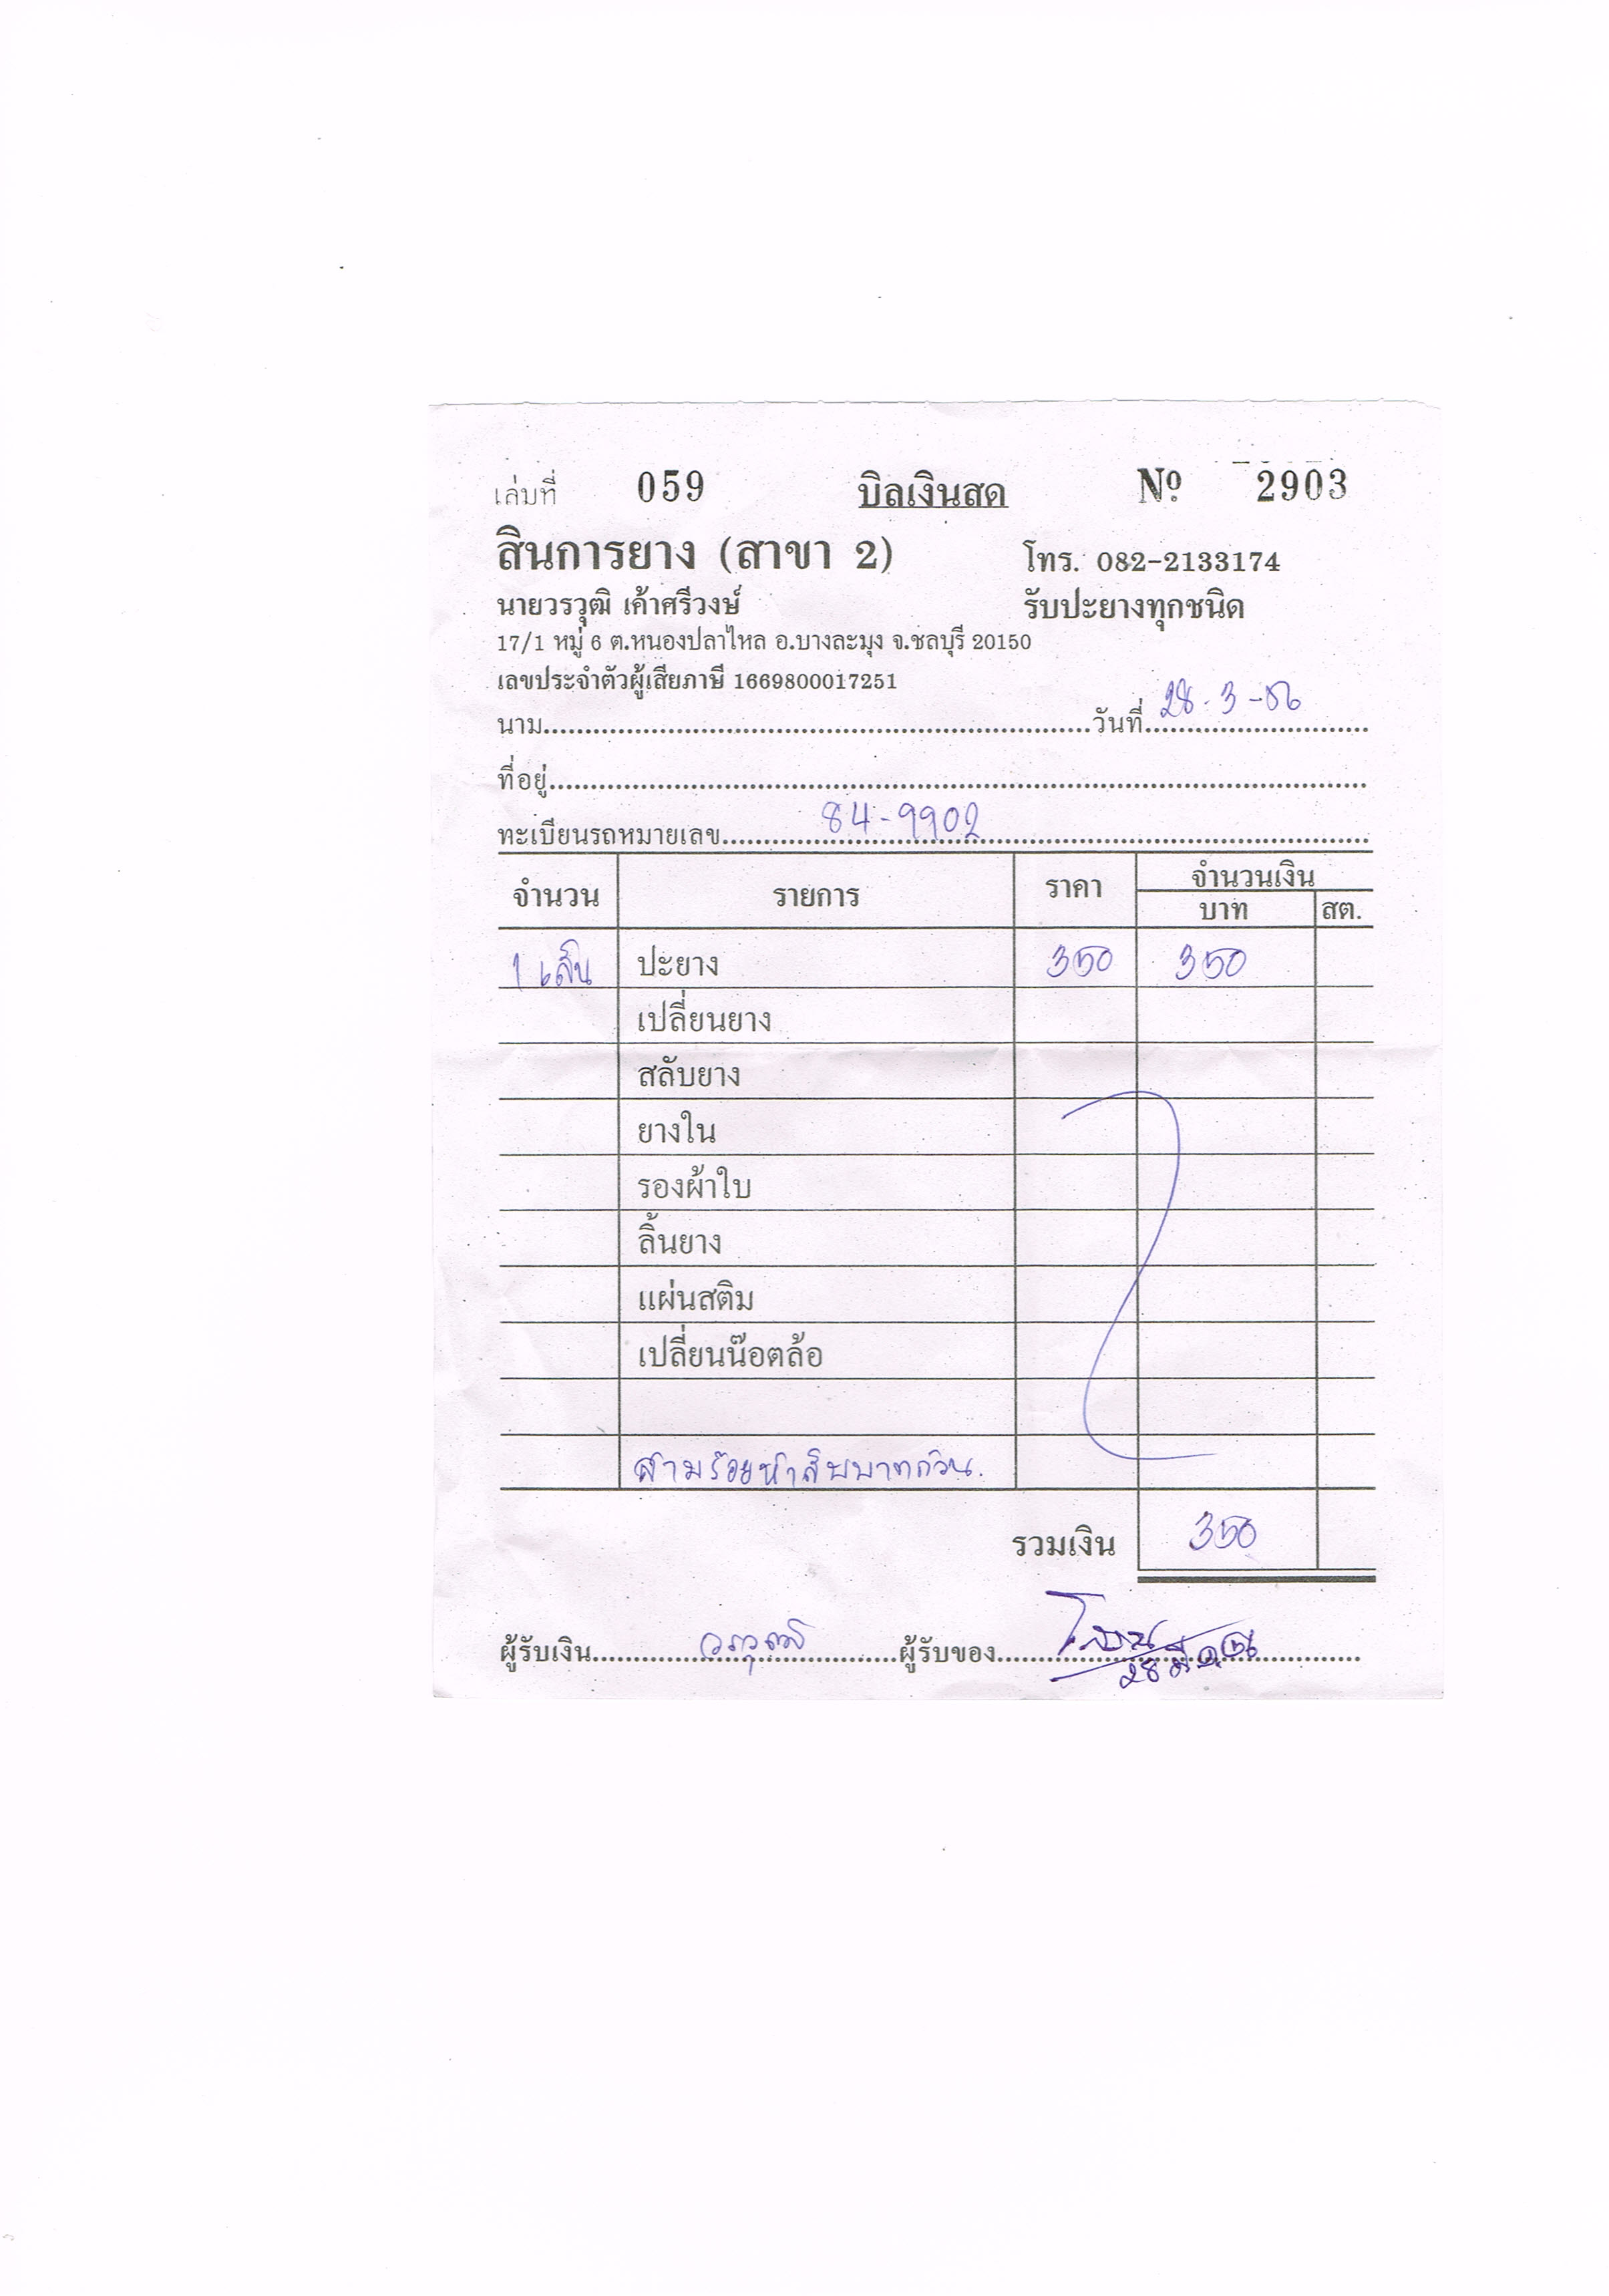 เล่มที่ 059 บิลเงินสด Nº 2903
สินการยาง (สาขา 2) โทร. 082-2133174
นายวรวุฒิ เค้าศรีวงษ์ รับปะยางทุกชนิด
17/1 หมู่ 6 ต.หนองปลาไหล อ.บางละมุง จ.ชลบุรี 20150
เลขประจำตัวผู้เสียภาษี 1669800017251
นาม วันที่ 28-3-
ที่อยู่
ทะเบียนรถหมายเลข 84-9902
จำนวน รายการ ราคา จำนวนเงิน
บาท สต.
1 เส้น ปะยาง 350 350
เปลี่ยนยาง
สลับยาง
ยางใน
รองผ้าใบ
ลิ้นยาง
แผ่นสติม
เปลี่ยนน๊อตล้อ
สามร้อยห้าสิบบาทถ้วน.
รวมเงิน 350
ผู้รับเงิน วรวุฒิ ผู้รับของ